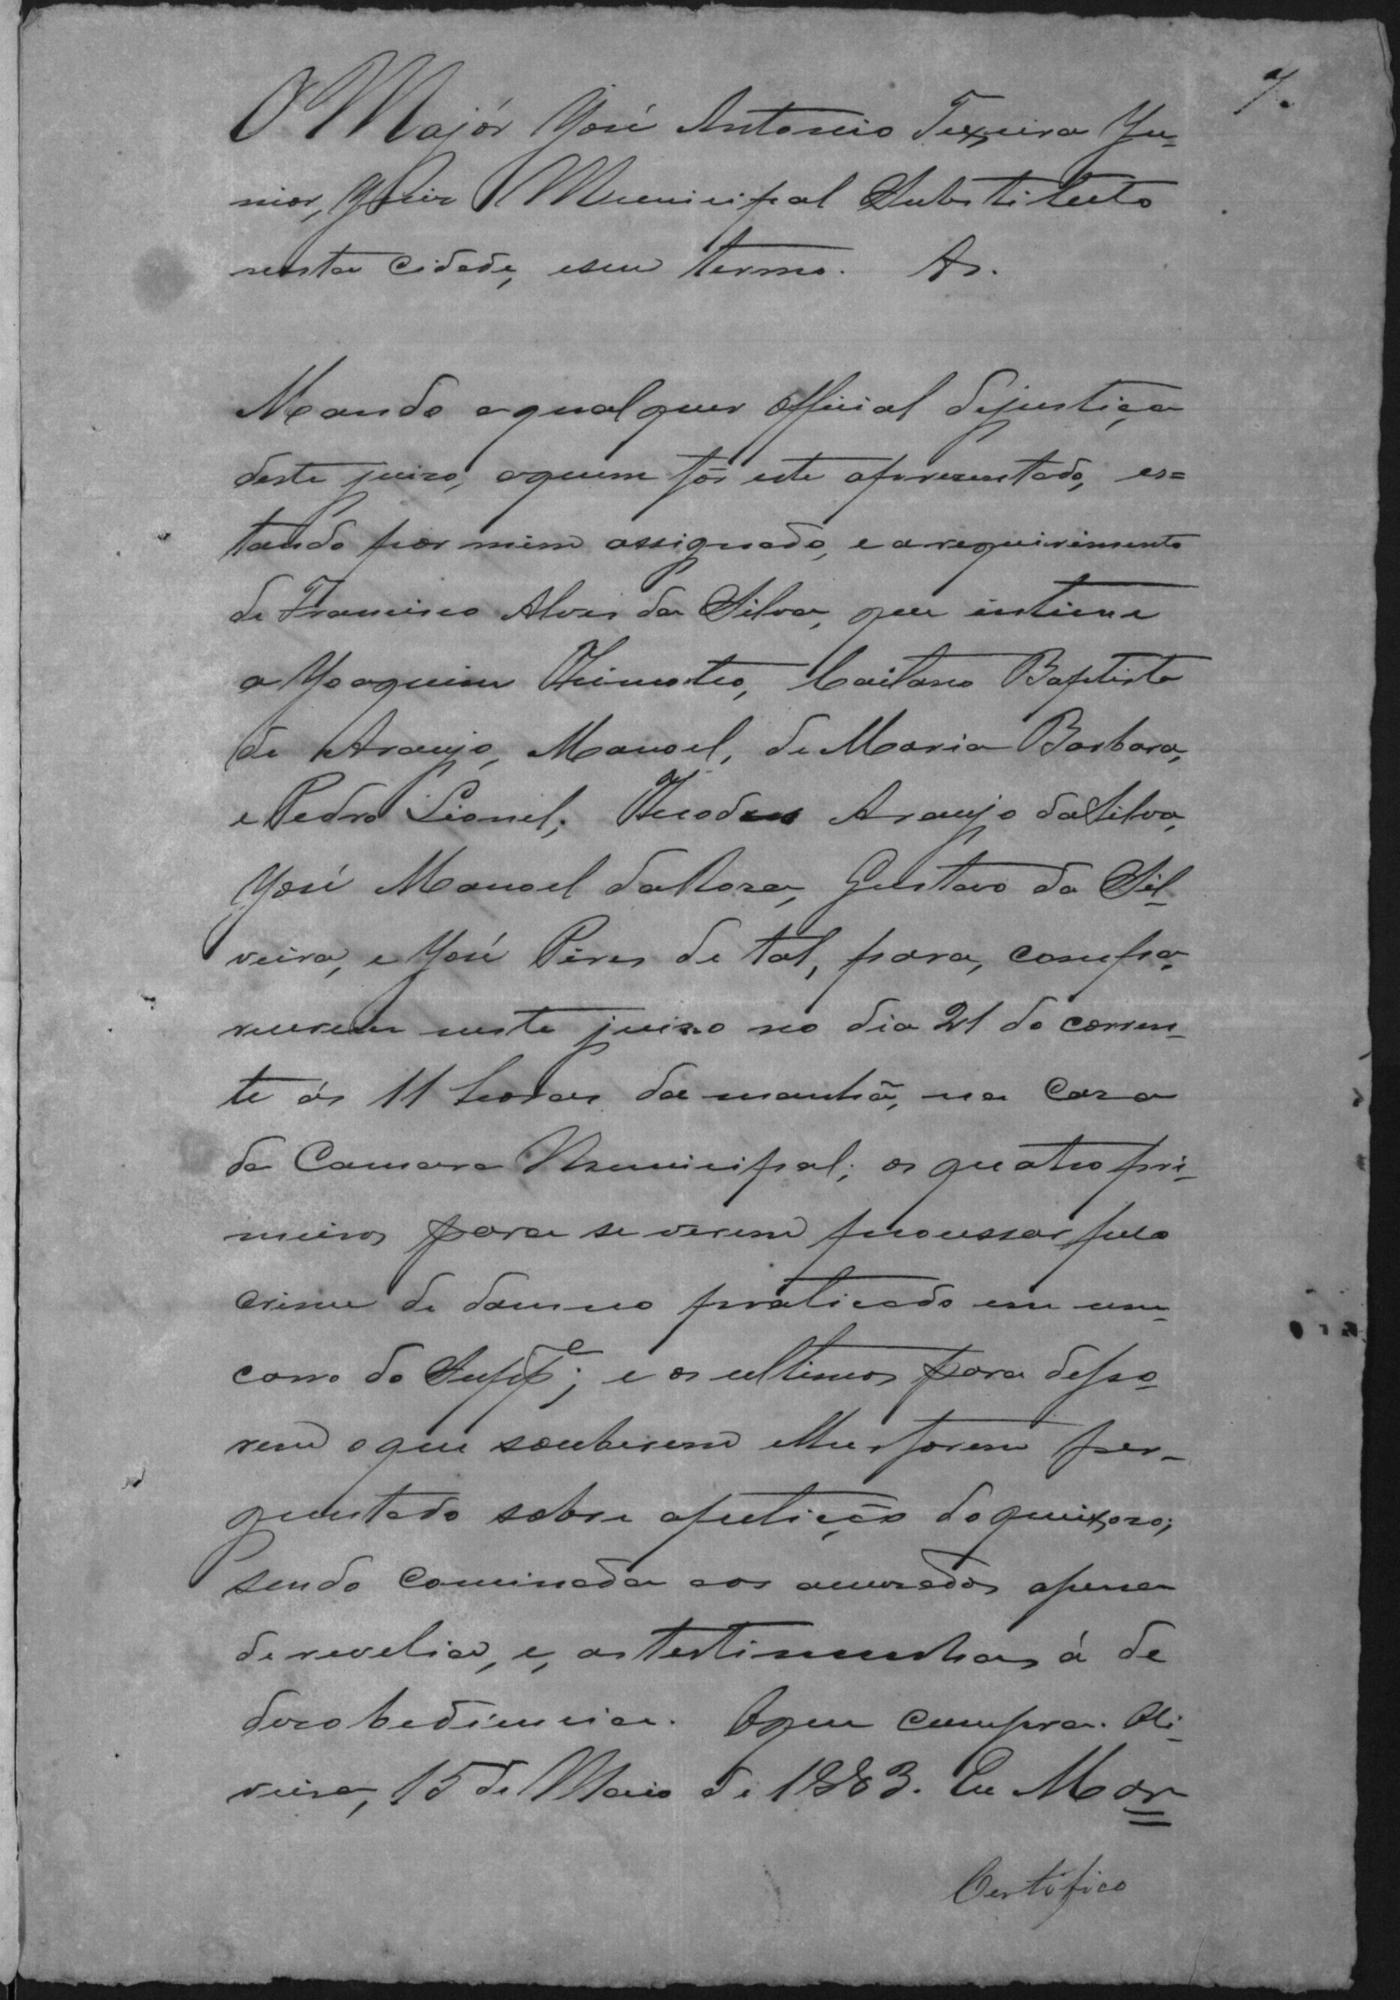 7.
O Majór José Antonio Teixeira Ju-
nior, Juiz Municipal Substituto
nesta cidade, e seu termo. &.
Mando a qualquer Official dejustiça
deste juizo, aquem fôr este apresentado, es=
tando por mim assignado, e a requirimento
de Francisco Alves da Silva, que intime
a Joaquim Thimoteo, Caitano Baptista
de Araujo, Manoel, de Maria Barbara,
e Pedro Lionel; Araujo da Silva,
José Manoel da Roza, Gustavo da Sil-
veira, e José Pires de tal, para, compa-
recerem neste juizo no dia 21 do corren-
te ás 11 horas da manhã, na Caza
da Camara Municipal; os quatro pri-
meiros para se verem processar pelo
crime de damno praticado em um
carro do Suppe; e os ultimos para depo-
rem o que souberem e lhes forem per-
guntado sobre apetição do queixozo;
sendo cominada aos accuzados apena
de revelia, e, as testimunhas á de
dezobediencia. O que cumpra. Oli-
veira, 15 de Maio de 1883. Eu Mar
Certifico